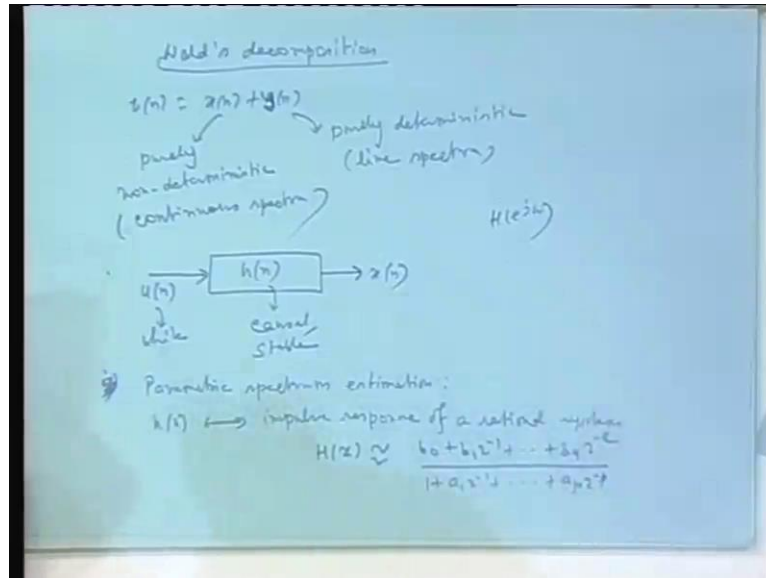 Wold's decomposition
z(n) = x(n) + y(n)
purely non-deterministic (continuous spectra)
purely deterministic (line spectra)
H(e^jω)
u(n) → h(n) → x(n)
white
causal, stable
Parametric spectrum estimation:
h(n) ⟷ impulse response of a rational system
H(z) ≈ b₀ + b₁z⁻¹ + ··· + b_q z^-q
1 + a₁z⁻¹ + ··· + a_p z^-p